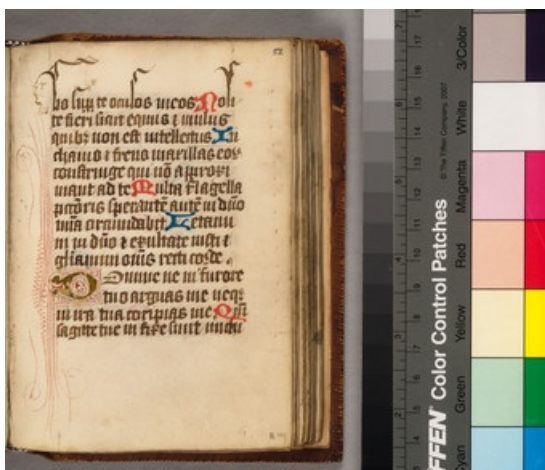 bo sup te oculos meos Noli
te fieri sicut equus ⁊ mulus
quibz non est intellectus In
chamo ⁊ freno maxillas eor
constringe qui nō approxi
mant ad te Multa flagella
pctōris sperantē autē in dn̄o
mīa circumdabit Letami
ni in dn̄o ⁊ exultate iusti ⁊
gl̄iamini om̄s recti corde .
Domine ne in furore
tuo arguas me neqz
in ira tua corripias me Qm̄
sagitte tue infixe sunt michi
FFEN® Color Control Patches
© The Tiffen Company, 2007
yan
Green
Yellow
Red
Magenta
White
3/Color